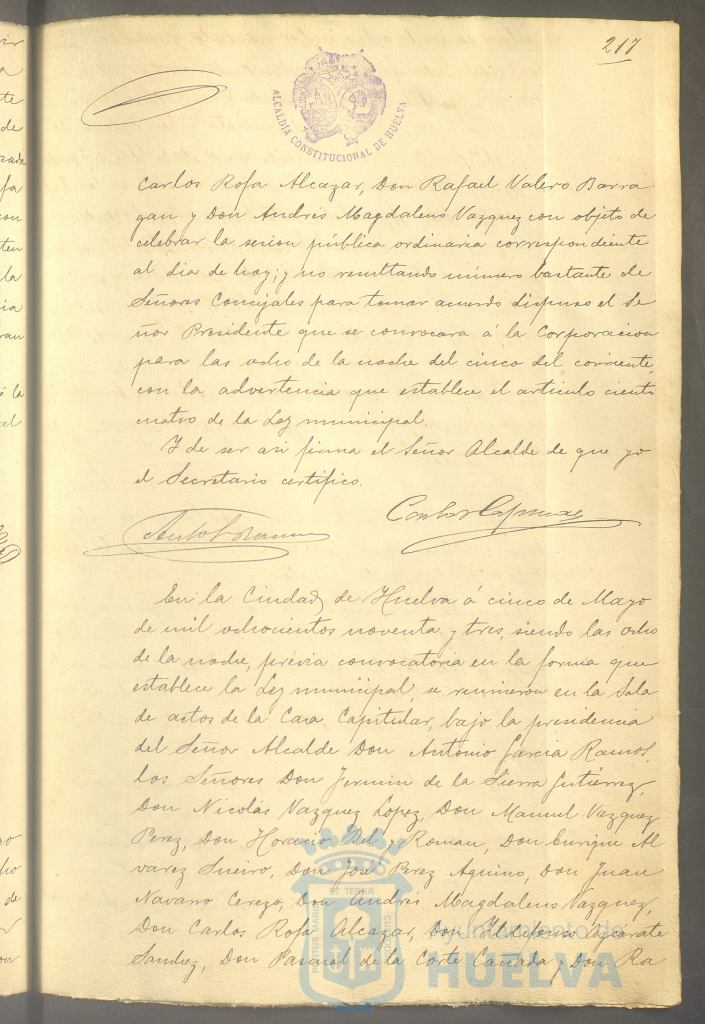 217
ALCALDÍA CONSTITUCIONAL DE HUELVA
Carlos Rofa Alcazar, Don Rafael Valero Barra
gan y Don Andrés Magdaleno Vazquez con objeto de
celebrar la sesion pública ordinaria correspondiente
al dia de hoy; y no resultando número bastante de
Señores Concejales para tomar acuerdo dispuso el Se
ñor Presidente que se convocara á la Corporacion
para las ocho de la noche del cinco del corriente,
con la advertencia que establece el articulo ciento
cuatro de la Ley municipal.
Y de ser asi firma el Señor Alcalde de que yo
el Secretario certifico.
En la Ciudad de Huelva á cinco de Mayo
de mil ochocientos noventa y tres, siendo las ocho
de la noche, prévia convocatoria en la forma que
establece la Ley municipal, se reunieron en la Sala
de actos de la Casa Capitular, bajo la presidencia
del Señor Alcalde Don Antonio Garcia Ramos,
los Señores Don Fermin de la Sierra Gutierrez,
Don Nicolás Vazquez Lopez, Don Manuel Vazquez
Perez, Don Horacio Bel y Roman, Don Enrique Al
varez Sueiro, Don José Perez Aquino, Don Juan
Navarro Cerezo, Don Andrés Magdaleno Vazquez,
Don Carlos Rofa Alcazar, Don Ildefonso Azcarate
Sanchez, Don Pascual de la Corte Cañada y Don Ra
PORTUS MARIS ET TERRAE CUSTODIA
Ayuntamiento de
HUELVA